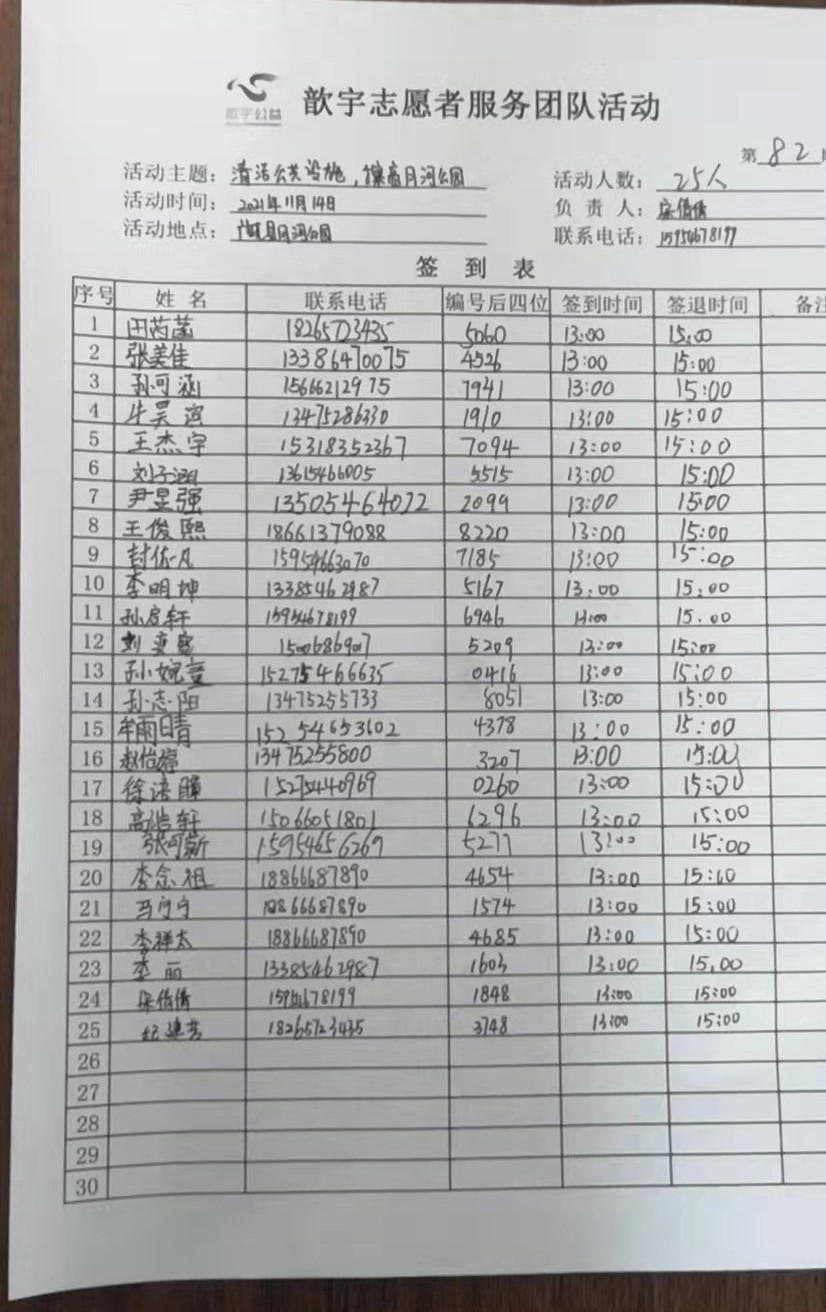 歆宇公益
歆宇志愿者服务团队活动
第 82
活动主题：清洁公共设施， 月河公园
活动人数：25人
活动时间：2021年11月14日
负 责 人：倩倩
活动地点：月河公园
联系电话：15954678199
签 到 表
序号 姓 名 联系电话 编号后四位 签到时间 签退时间 备注
1 田芮菡 18265723435 5060 13:00 15:00
2 张美佳 13386470075 4526 13:00 15:00
3 孙可涵 15666212975 7941 13:00 15:00
4 牛昊 13475286330 1910 13:00 15:00
5 王杰宇 15318352367 7094 13:00 15:00
6 刘子涵 13615466005 5515 13:00 15:00
7 尹昱强 13505464072 2099 13:00 15:00
8 王俊熙 18661379088 8220 13:00 15:00
9 封依凡 15954663070 7185 13:00 15:00
10 李明坤 13385462987 5167 13:00 15:00
11 孙启轩 15954678199 6946 13:00 15.00
12 刘 5209 13:00 15:00
13 孙婉 15275466635 0416 13:00 15:00
14 孙志阳 13475255733 8051 13:00 15:00
15 牟雨晴 152 54653602 4378 13:00 15:00
16 赵怡婷 13475255800 3207 13:00 15:00
17 徐 15275440969 0260 13:00 15:00
18 高浩轩 15066051801 6296 13:00 15:00
19 张可新 15954656269 5277 13:00 15:00
20 李念祖 18866687890 4654 13:00 15:00
21 马宁宁 18866687890 1574 13:00 15:00
22 李祥太 18866687890 4685 13:00 15:00
23 李丽 13385462987 1603 13:00 15.00
24 倩倩 15954678199 1848 13:00 15:00
25 纪建芳 18265723435 3748 13:00 15:00
26
27
28
29
30